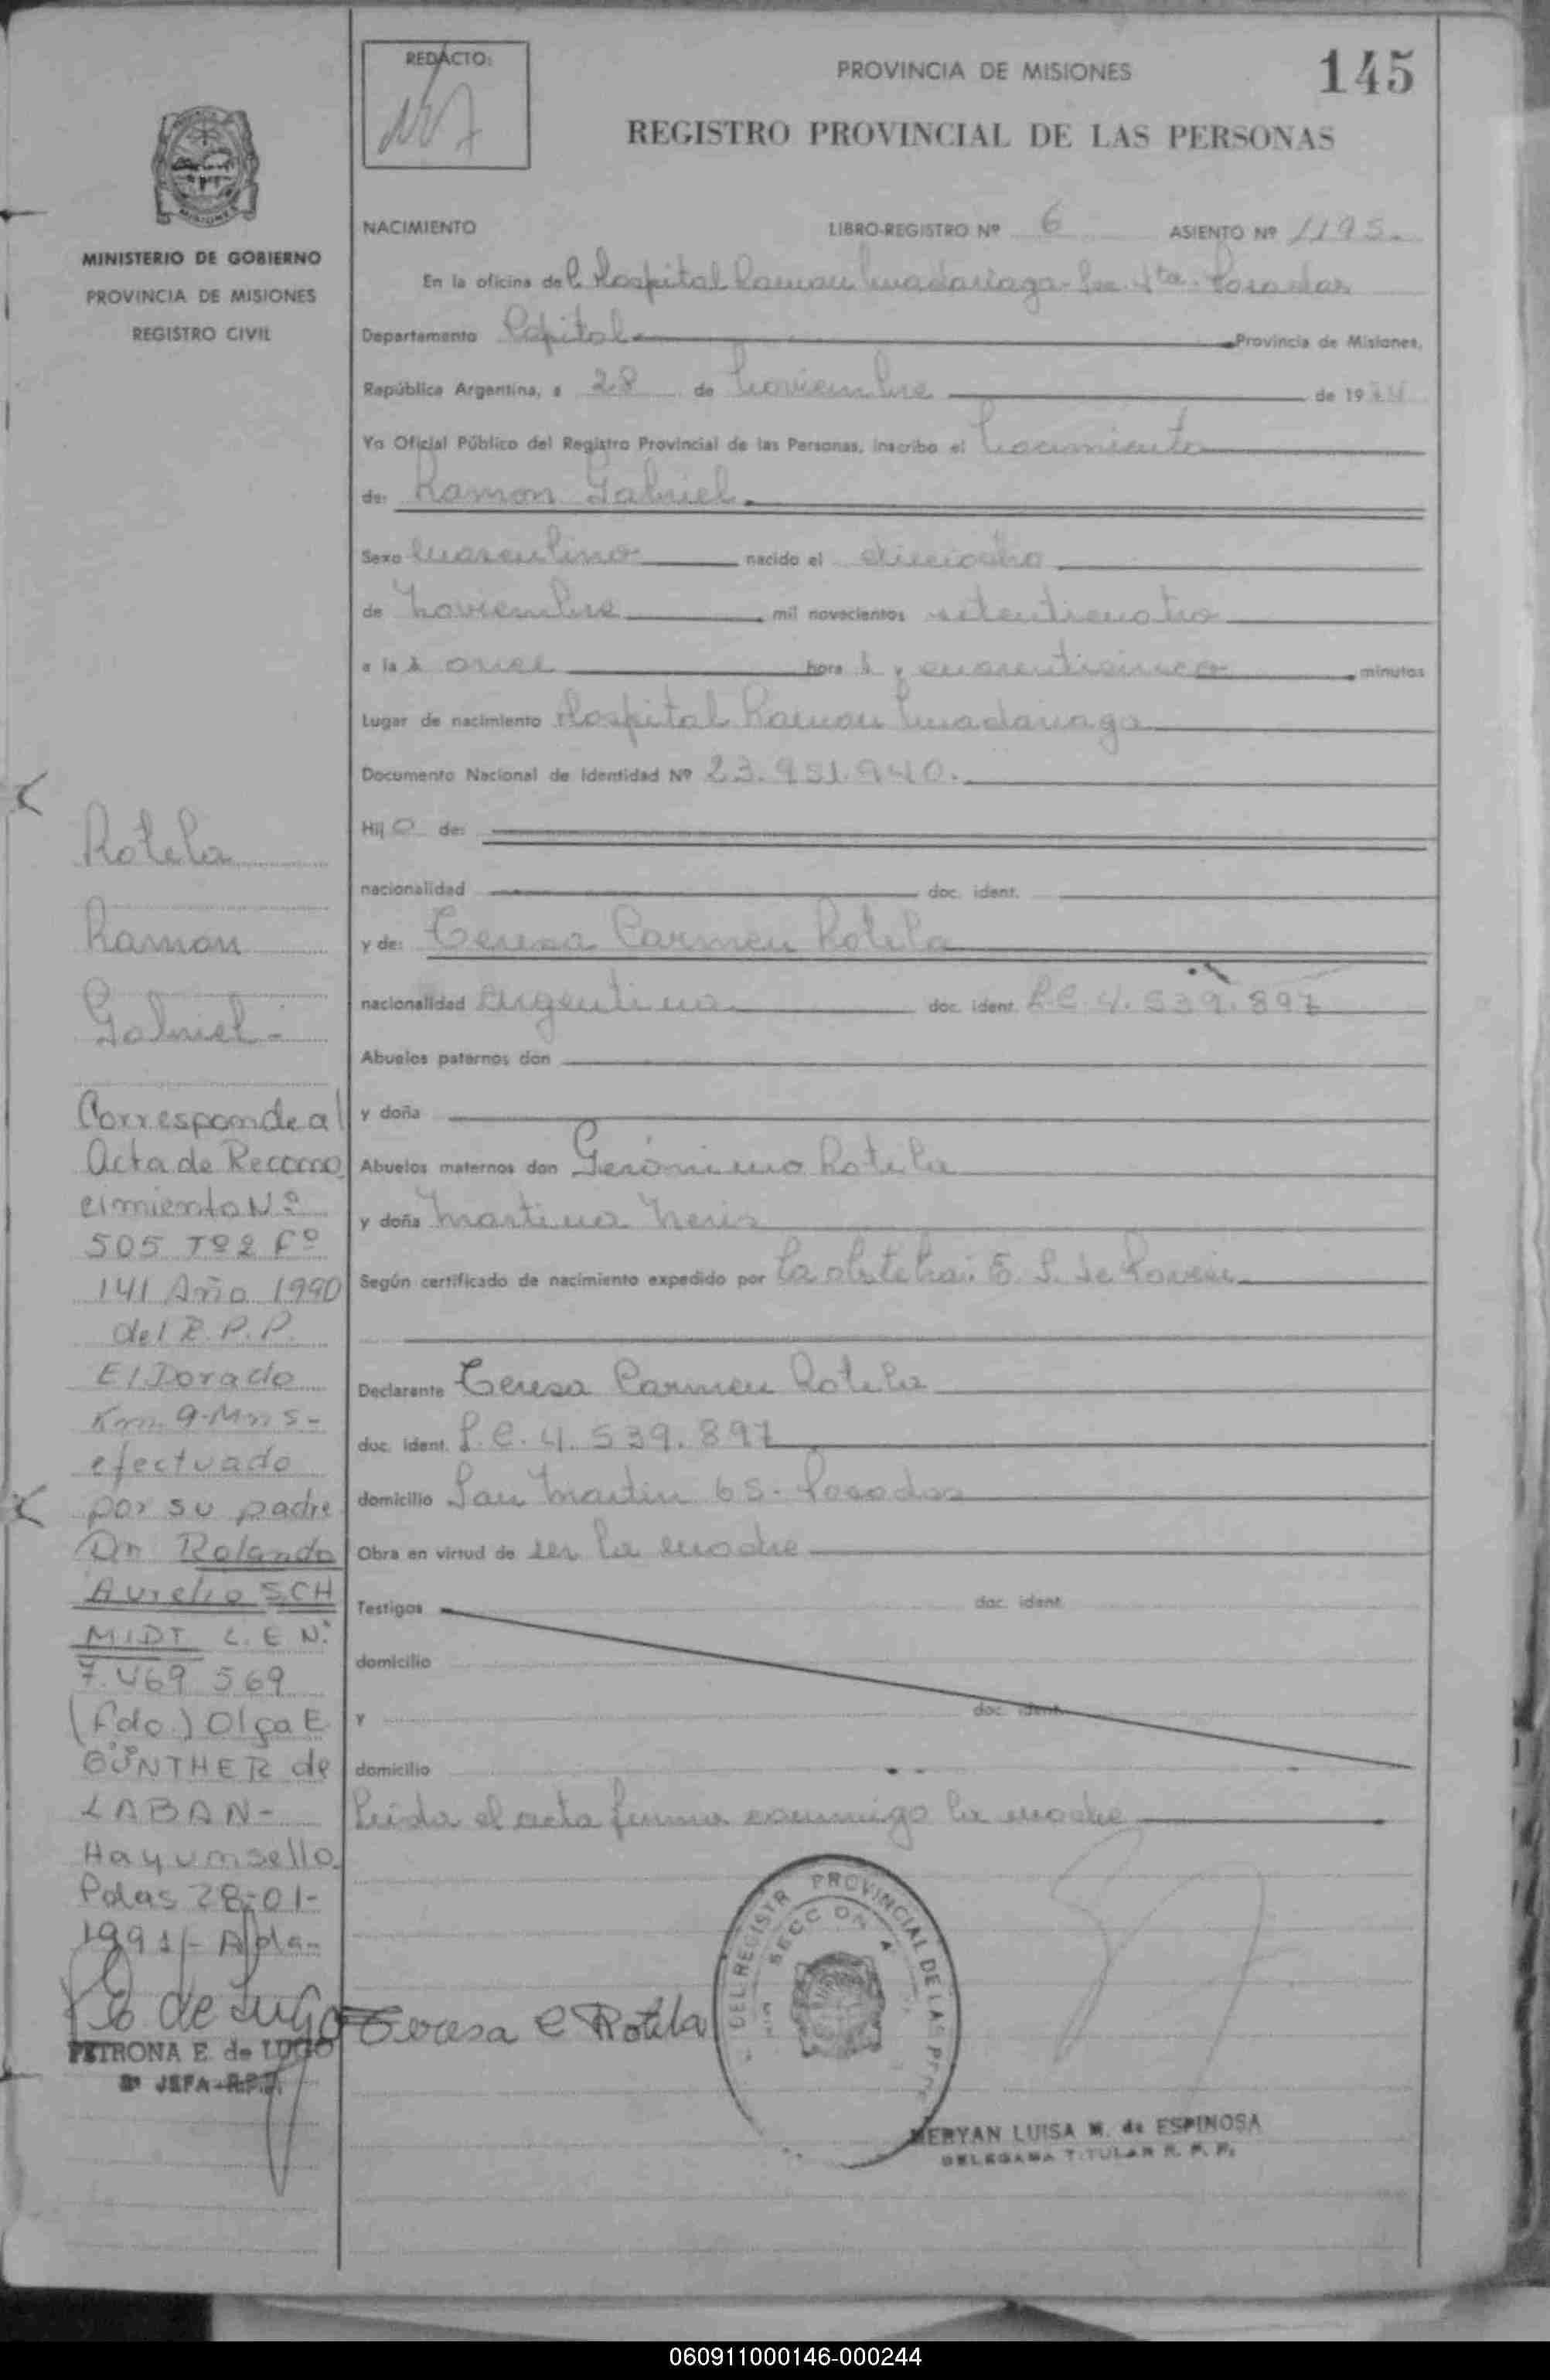 REDACTO:
PROVINCIA DE MISIONES
145
REGISTRO PROVINCIAL DE LAS PERSONAS
MISIONES
MINISTERIO DE GOBIERNO
PROVINCIA DE MISIONES
REGISTRO CIVIL
NACIMIENTO LIBRO-REGISTRO Nº 6 ASIENTO Nº 1195.
En la oficina del Hospital Ramon Madariaga Sec. 4ta. Posadas
Departamento Capital Provincia de Misiones,
República Argentina, a 28 de Noviembre de 1974
Yo Oficial Público del Registro Provincial de las Personas, inscribo el Nacimiento
de: Ramon Gabriel
Sexo Masculino nacido el dieciocho
de Noviembre mil novecientos setenticuatro
a la s once hora s y cuarenticinco minutos
Lugar de nacimiento Hospital Ramon Madariaga
Documento Nacional de Identidad Nº 23.951.940.
Hij o de:
nacionalidad doc. ident.
y de: Teresa Carmen Rotela
nacionalidad Argentina doc. ident. L.C. 4.539.897
Abuelos paternos don
y doña
Abuelos maternos don Gerónimo Rotela
y doña Martina Neris
Según certificado de nacimiento expedido por La obstetra: E. S. de
Declarante Teresa Carmen Rotela
doc. ident. L.C. 4.539.897
domicilio San Martin 65 - Posadas
Obra en virtud de ser la madre
Testigos doc. ident.
domicilio
y doc. ident.
domicilio
Leida el acta firma conmigo la madre
Teresa C Rotela
DEL REGISTR PROVINCIAL DE LAS
SECC ON 4
MERYAN LUISA M. de ESPINOSA
DELEGADA TITULAR R. P. P.
Rotela
Ramon
Gabriel.-
Corresponde al
Acta de Recono
cimiento Nº
505 Tº 2 Fº
141 Año 1990
del R.P.P.
El Dorado
Km. 9-Mns-
efectuado
por su padre
Dn Rolando
Aurelio SCH
MIDT L.E Nº
7.469 569
(Fdo.) Olga E
GÜNTHER de
LABAN-
Hay un sello
Pdas 28-01-
1991/-
E de Lugo
PETRONA E. de LUGO
2ª JEFA R.P.P.
060911000146-000244